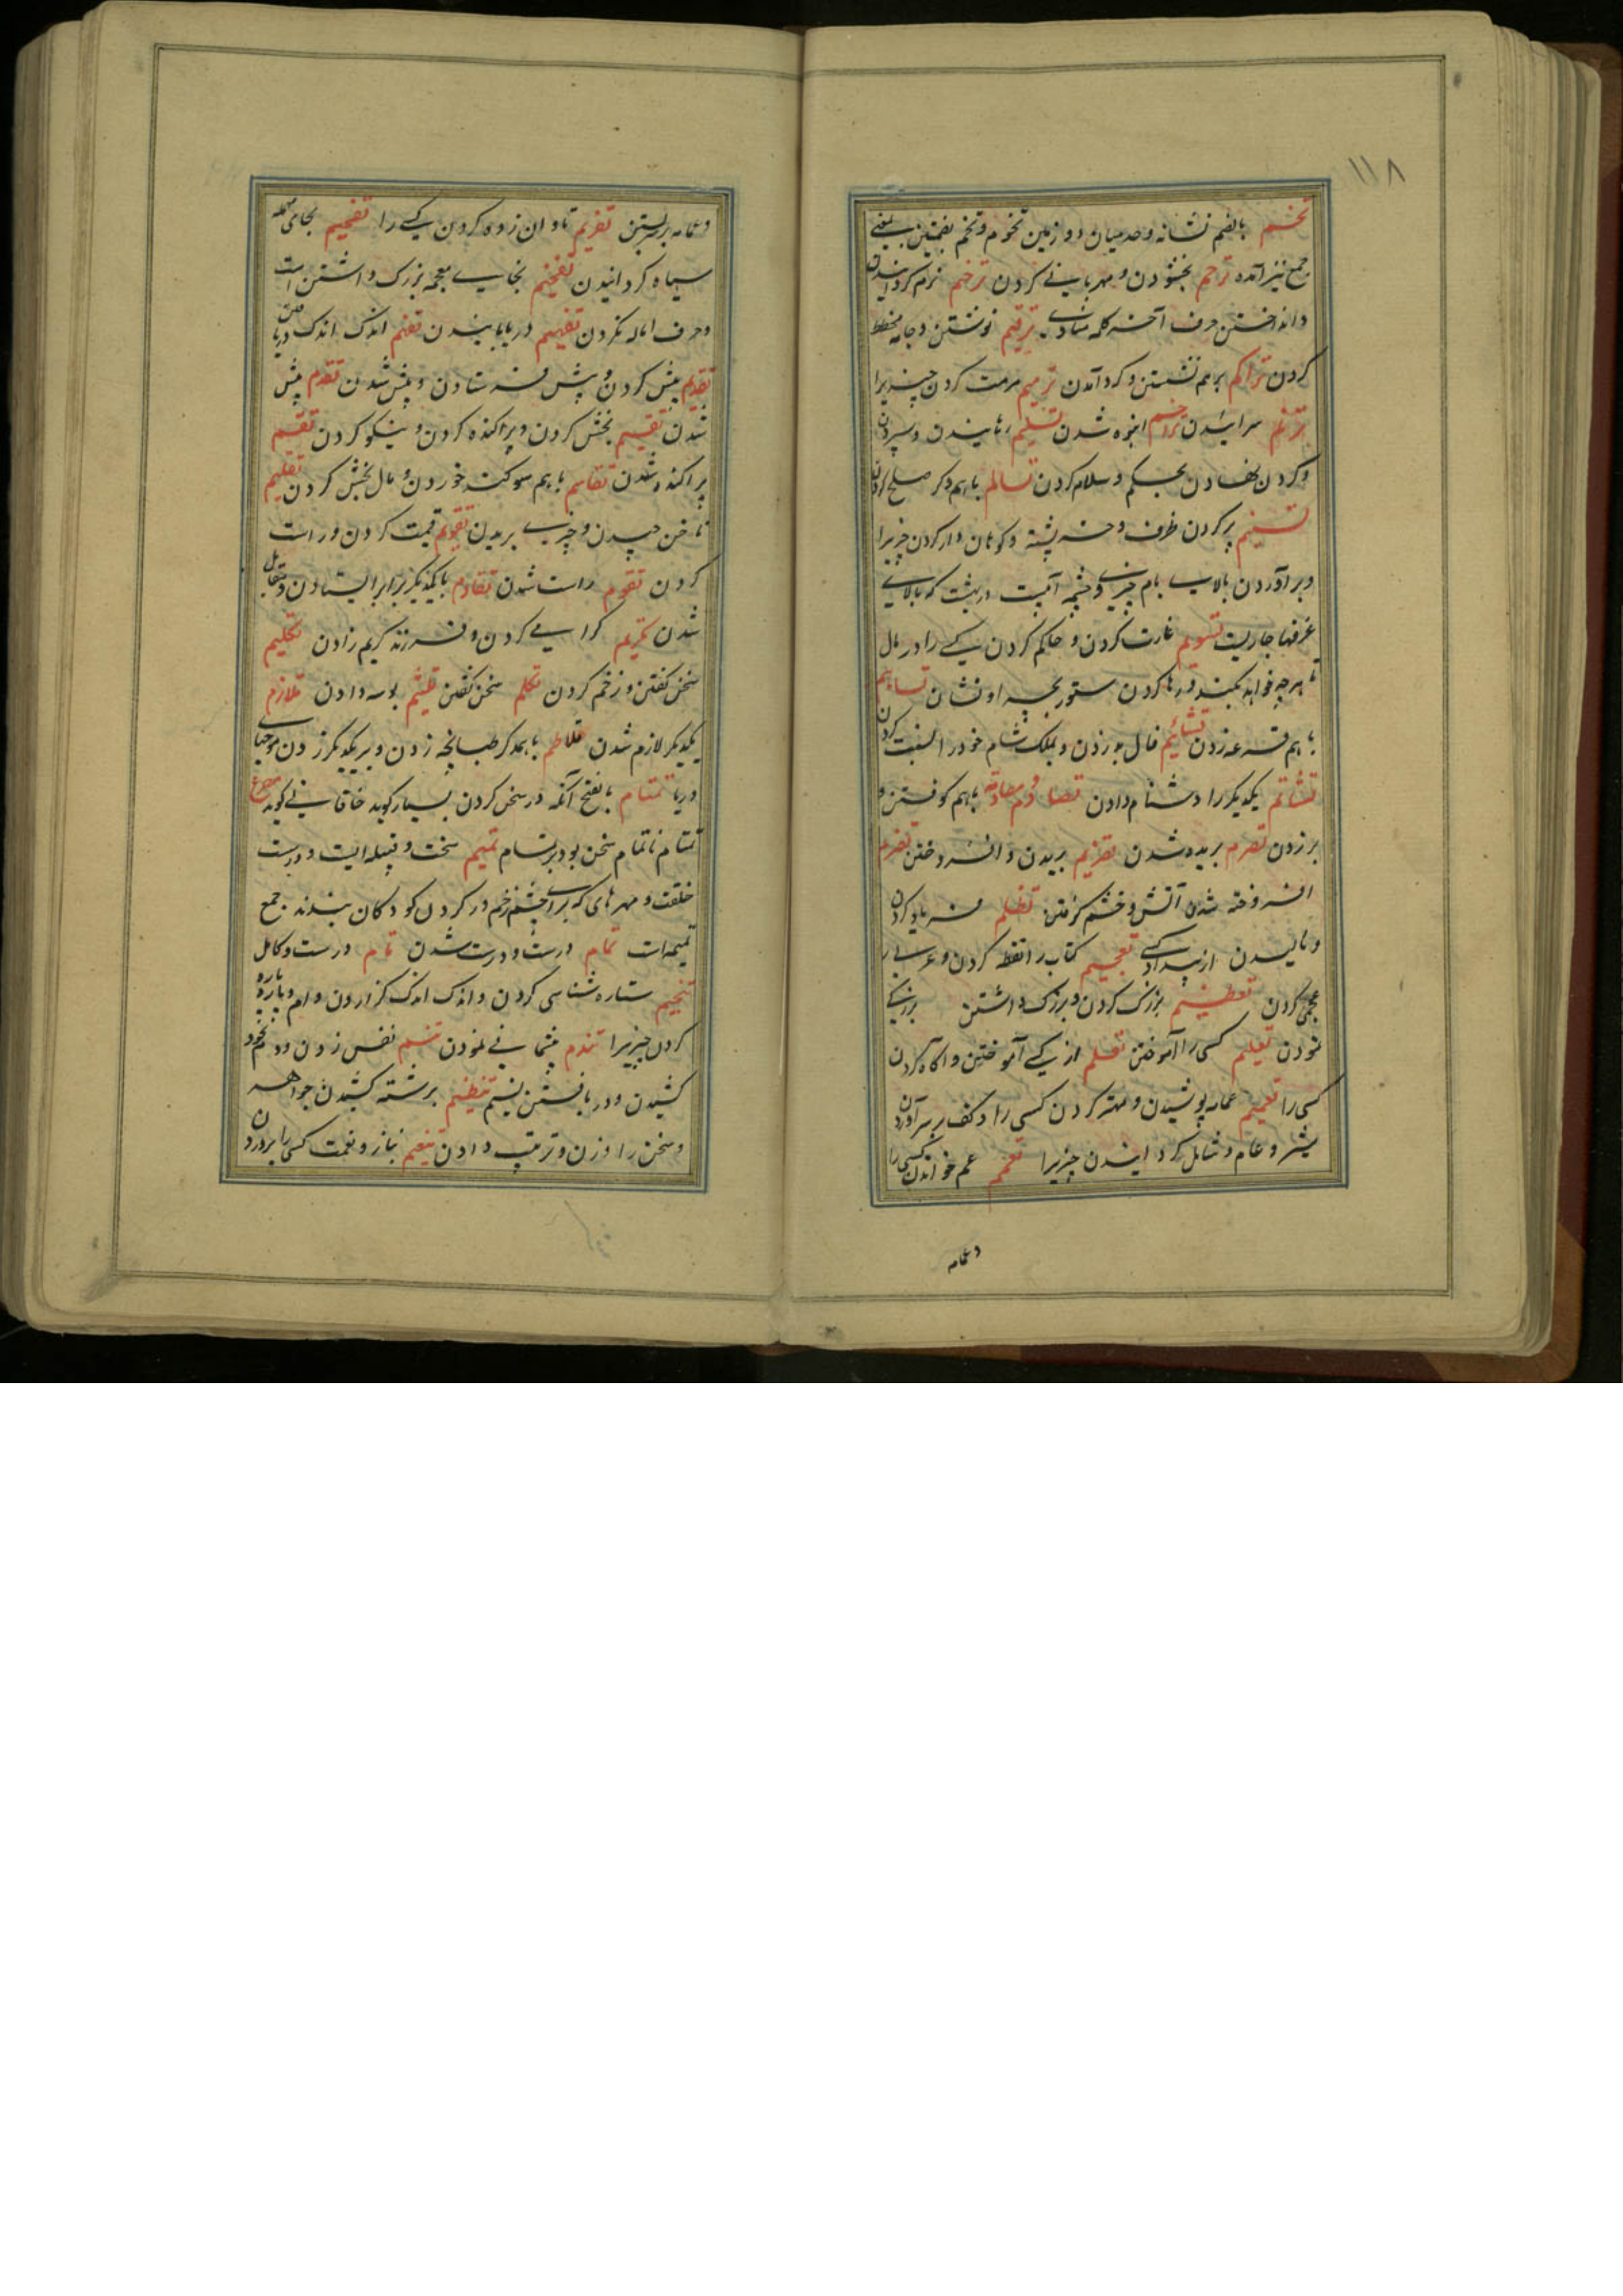 ۱۱۸
تخم بالضم نشانه و حد میان دو زمین تخوم و تخم بضمتین بمعنی
جمع نیز آمده ترحم بخشودن و مهربانی کردن ترخیم نرم کردانیدن
و انداختن حرف آخر کلمه منادی ترقیم نوشتن و جامه مخطط
کردن تراکم برهم نشستن و کرد آمدن ترمیم مرمت کردن چیزیرا
ترنم سرائیدن تزاحم انبوه شدن تسلیم رهانیدن و سپردن
و کردن نهادن بحکم و سلام کردن تسالم باهم دکر صلح کردن
تسنیم پر کردن ظرف و خرپشته و کوهان دار کردن چیزیرا
و برآوردن بالای بام چیزی و چشمه آبیست در بهشت که بالای
غرفها جاریست تسویم غارت کردن و حاکم کردن یکی را در مال
تا هر چه خواهد بکند و رها کردن ستور بچرا و نشان تساهم
باهم قرعه زدن تشائیم فال بد زدن و بملک شام خود را نسبت کردن
تشاتم یکدیکر را دشنام دادن تصادم و مصادمة باهم کوفتن و
بر زدن تصرم بریده شدن تصریم بریدن و افروختن تضرم
افروخته شدن آتش و خشم کرفتن تظلم فریاد کردن
و نالیدن از بیداد کسی تعجیم کتاب را نقطه کردن و عربی را
عجمی کردن تعظیم بزرک کردن و بزرک داشتن بزرکی
نمودن تعلیم کسی را آموختن تعلم از یکی آموختن و آکاه کردن
کسی را تعمیم عمامه پوشیدن و مهتر کردن کسی را و کف بر سر آوردن
شیر و عام و شامل کردانیدن چیزیرا تعمم عم خواندن کسی را
و عمامه
و عمامه بر سر بستن تغریم تاوان زده کردن یکی را تفحیم بجای مهمله
سیاه کردانیدن تفخیم بخای معجمه بزرک داشتن است
و حرف اماله نکردن تفهیم دریابانیدن تفهم اندک اندک دریافتن
تقدیم پیش کردن و پیش فرستادن و پیش شدن تقدم پیش
شدن تقسیم بخش کردن و پراکنده کردن و نیکو کردن تقسم
پراکنده شدن تقاسم باهم سوکند خوردن و مال بخش کردن تقلیم
ناخن چیدن و چیزی بریدن تقویم قیمت کردن و راست
کردن تقوم راست شدن تقاوم با یکدیکر برابر ایستادن و مقابل
شدن تکریم کرامی کردن و فرزند کریم زادن تکلیم
سخن کفتن و زخم کردن تکلم سخن کفتن تلثیم بوسه دادن تلازم
یکدیکر لازم شدن تلاطم باهمدکر طبانچه زدن و بر یکدیکر زدن موجهای
دریا تمتام بالفتح آنکه در سخن کردن بسیار کوید خاقانی کوید مصرع
تمتام ناتمام سخن بود بر تمام تمیم سخت و قبیله ایست و درست
خلقت و مهرهای که برای چشم زخم در کردن کودکان بندند جمع
تمیمه است تمام درست و درست شدن تام درست و کامل
تنجیم ستاره شناسی کردن و اندک اندک کزاردن وام و پاره پاره
کردن چیزیرا تندم پشیمانی نمودن تنسم نفس زدن و دم بخود
کشیدن و دریافتن نسیم تنظیم برشته کشیدن جواهر
و سخن را وزن و ترتیب دادن تنعیم بناز و نعمت کسی را پروردن